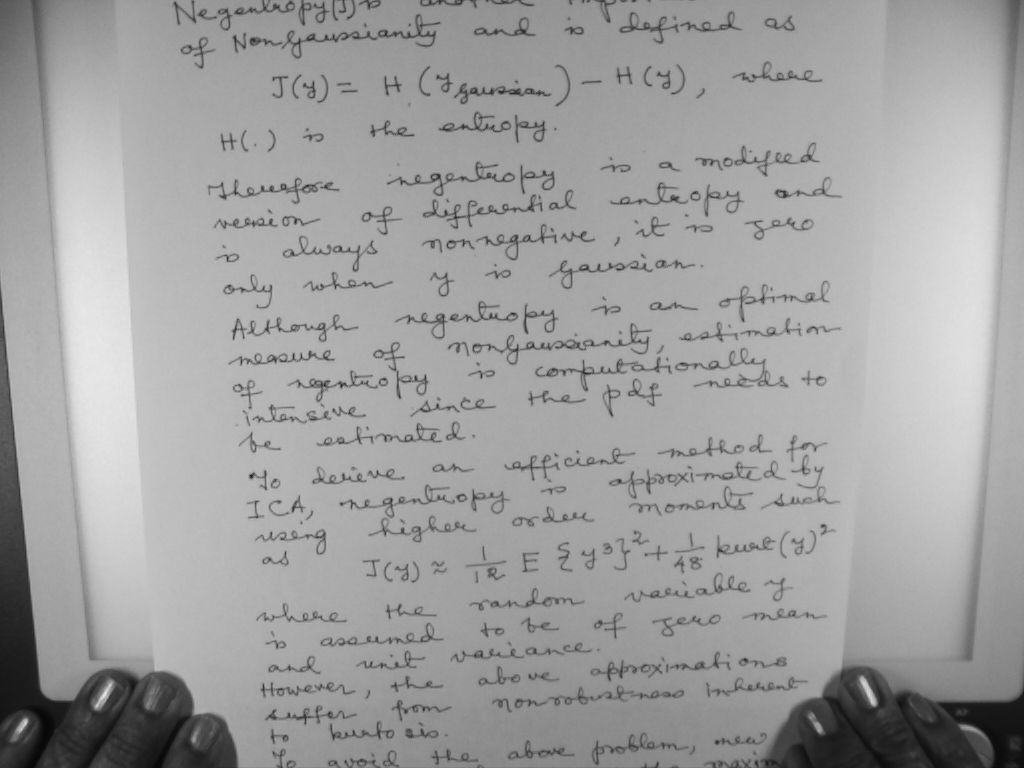 Negentropy(J) is another
of NonGaussianity and is defined as
J(y) = H (y gaussian) - H (y), where
H(.) is the entropy.
Therefore negentropy is a modified
version of differential entropy and
is always nonnegative, it is zero
only when y is Gaussian.
Although negentropy is an optimal
measure of nonGaussianity, estimation
of negentropy is computationally
intensive since the pdf needs to
be estimated.
To derive an efficient method for
ICA, negentropy is approximated by
using higher order moments such
as J(y) ≈ 1/12 E {y³}² + 1/48 kurt(y)²
where the random variable y
is assumed to be of zero mean
and unit variance.
However, the above approximations
suffer from nonrobustness inherent
to kurtosis.
To avoid the above problem, new
the maxim